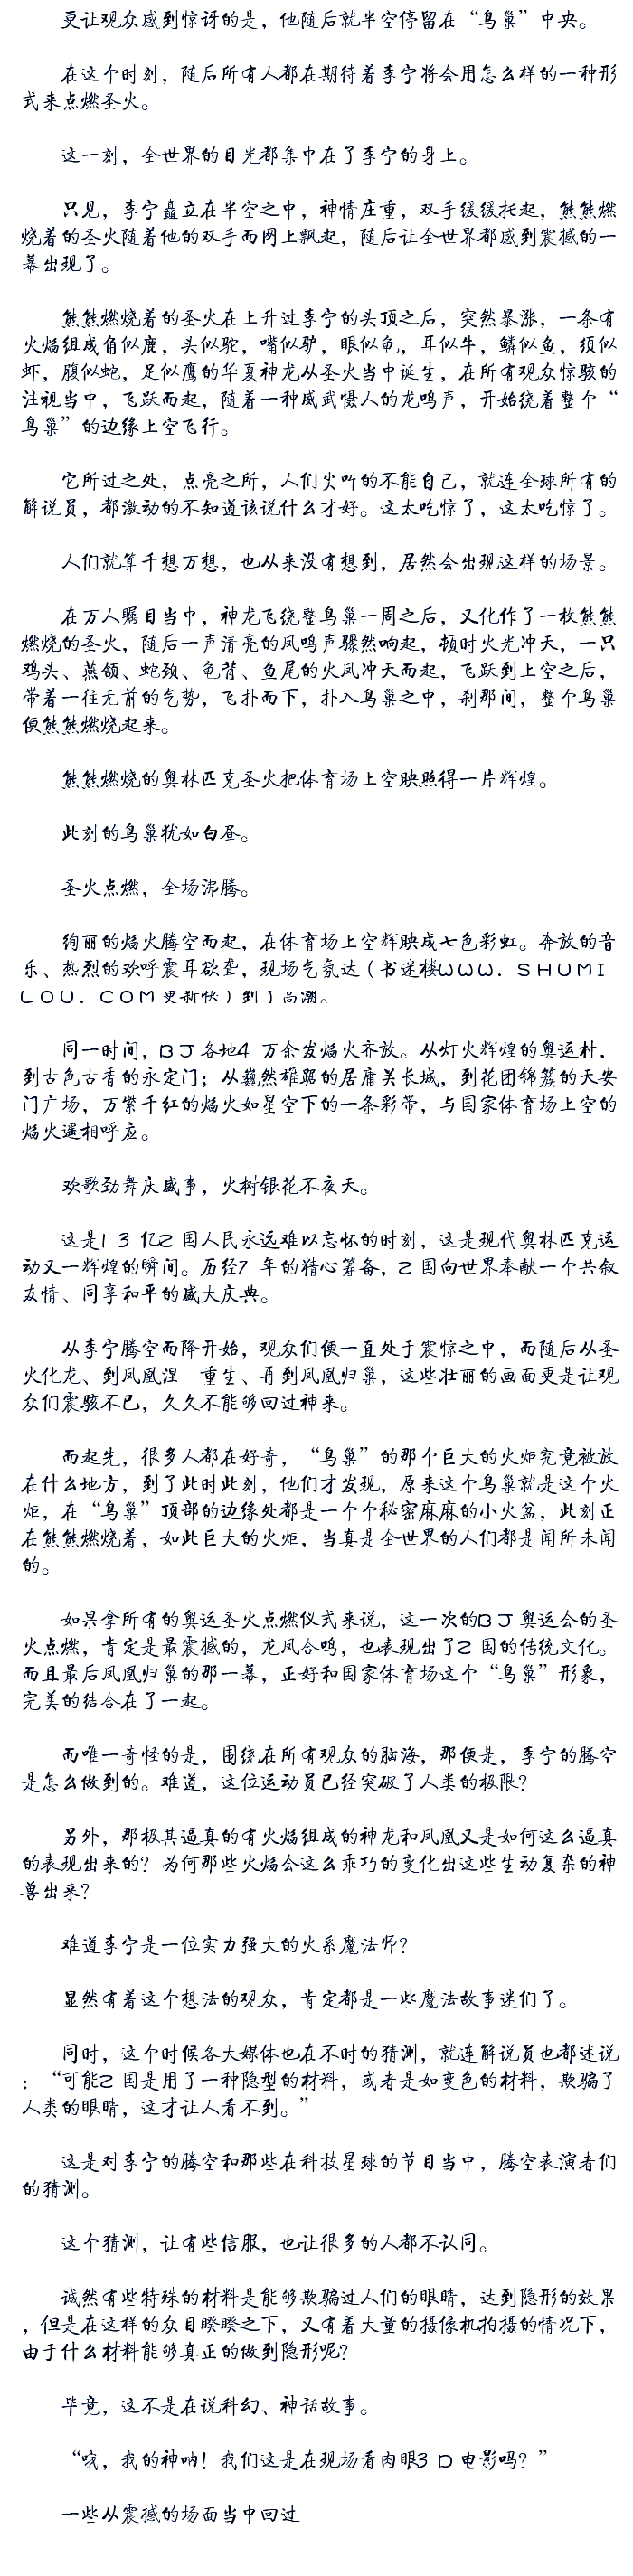 更让观众感到惊讶的是，他随后就半空停留在“鸟巢”中央。
在这个时刻，随后所有人都在期待着李宁将会用怎么样的一种形
式来点燃圣火。
这一刻，全世界的目光都集中在了李宁的身上。
只见，李宁矗立在半空之中，神情庄重，双手缓缓托起，熊熊燃
烧着的圣火随着他的双手而网上飘起，随后让全世界都感到震撼的一
幕出现了。
熊熊燃烧着的圣火在上升过李宁的头顶之后，突然暴涨，一条有
火焰组成角似鹿，头似驼，嘴似驴，眼似龟，耳似牛，鳞似鱼，须似
虾，腹似蛇，足似鹰的华夏神龙从圣火当中诞生，在所有观众惊骇的
注视当中，飞跃而起，随着一种威武慑人的龙鸣声，开始绕着整个“
鸟巢”的边缘上空飞行。
它所过之处，点亮之所，人们尖叫的不能自己，就连全球所有的
解说员，都激动的不知道该说什么才好。这太吃惊了，这太吃惊了。
人们就算千想万想，也从来没有想到，居然会出现这样的场景。
在万人瞩目当中，神龙飞绕整鸟巢一周之后，又化作了一枚熊熊
燃烧的圣火，随后一声清亮的凤鸣声骤然响起，顿时火光冲天，一只
鸡头、燕颔、蛇颈、龟背、鱼尾的火凤冲天而起，飞跃到上空之后，
带着一往无前的气势，飞扑而下，扑入鸟巢之中，刹那间，整个鸟巢
便熊熊燃烧起来。
熊熊燃烧的奥林匹克圣火把体育场上空映照得一片辉煌。
此刻的鸟巢犹如白昼。
圣火点燃，全场沸腾。
绚丽的焰火腾空而起，在体育场上空辉映成七色彩虹。奔放的音
乐、热烈的欢呼震耳欲聋，现场气氛达（书迷楼WWW．SHUMI
LOU．COM更新快）到了高潮。
同一时间，BJ各地4 万余发焰火齐放。从灯火辉煌的奥运村，
到古色古香的永定门；从巍然雄踞的居庸关长城，到花团锦簇的天安
门广场，万紫千红的焰火如星空下的一条彩带，与国家体育场上空的
焰火遥相呼应。
欢歌劲舞庆盛事，火树银花不夜天。
这是1 3 亿Z 国人民永远难以忘怀的时刻，这是现代奥林匹克运
动又一辉煌的瞬间。历经7 年的精心筹备，Z 国向世界奉献一个共叙
友情、同享和平的盛大庆典。
从李宁腾空而降开始，观众们便一直处于震惊之中，而随后从圣
火化龙、到凤凰涅 重生、再到凤凰归巢，这些壮丽的画面更是让观
众们震骇不已，久久不能够回过神来。
而起先，很多人都在好奇，“鸟巢”的那个巨大的火炬究竟被放
在什么地方，到了此时此刻，他们才发现，原来这个鸟巢就是这个火
炬，在“鸟巢”顶部的边缘处都是一个个秘密麻麻的小火盆，此刻正
在熊熊燃烧着，如此巨大的火炬，当真是全世界的人们都是闻所未闻
的。
如果拿所有的奥运圣火点燃仪式来说，这一次的BJ奥运会的圣
火点燃，肯定是最震撼的，龙凤合鸣，也表现出了Z 国的传统文化。
而且最后凤凰归巢的那一幕，正好和国家体育场这个“鸟巢”形象，
完美的结合在了一起。
而唯一奇怪的是，围绕在所有观众的脑海，那便是，李宁的腾空
是怎么做到的。难道，这位运动员已经突破了人类的极限？
另外，那极其逼真的有火焰组成的神龙和凤凰又是如何这么逼真
的表现出来的？为何那些火焰会这么乖巧的变化出这些生动复杂的神
兽出来？
难道李宁是一位实力强大的火系魔法师？
显然有着这个想法的观众，肯定都是一些魔法故事迷们了。
同时，这个时候各大媒体也在不时的猜测，就连解说员也都述说
：“可能Z 国是用了一种隐型的材料，或者是如变色的材料，欺骗了
人类的眼睛，这才让人看不到。”
这是对李宁的腾空和那些在科技星球的节目当中，腾空表演者们
的猜测。
这个猜测，让有些信服，也让很多的人都不认同。
诚然有些特殊的材料是能够欺骗过人们的眼睛，达到隐形的效果
，但是在这样的众目睽睽之下，又有着大量的摄像机拍摄的情况下，
由于什么材料能够真正的做到隐形呢？
毕竟，这不是在说科幻、神话故事。
“哦，我的神呐！我们这是在现场看肉眼3 D 电影吗？”
一些从震撼的场面当中回过